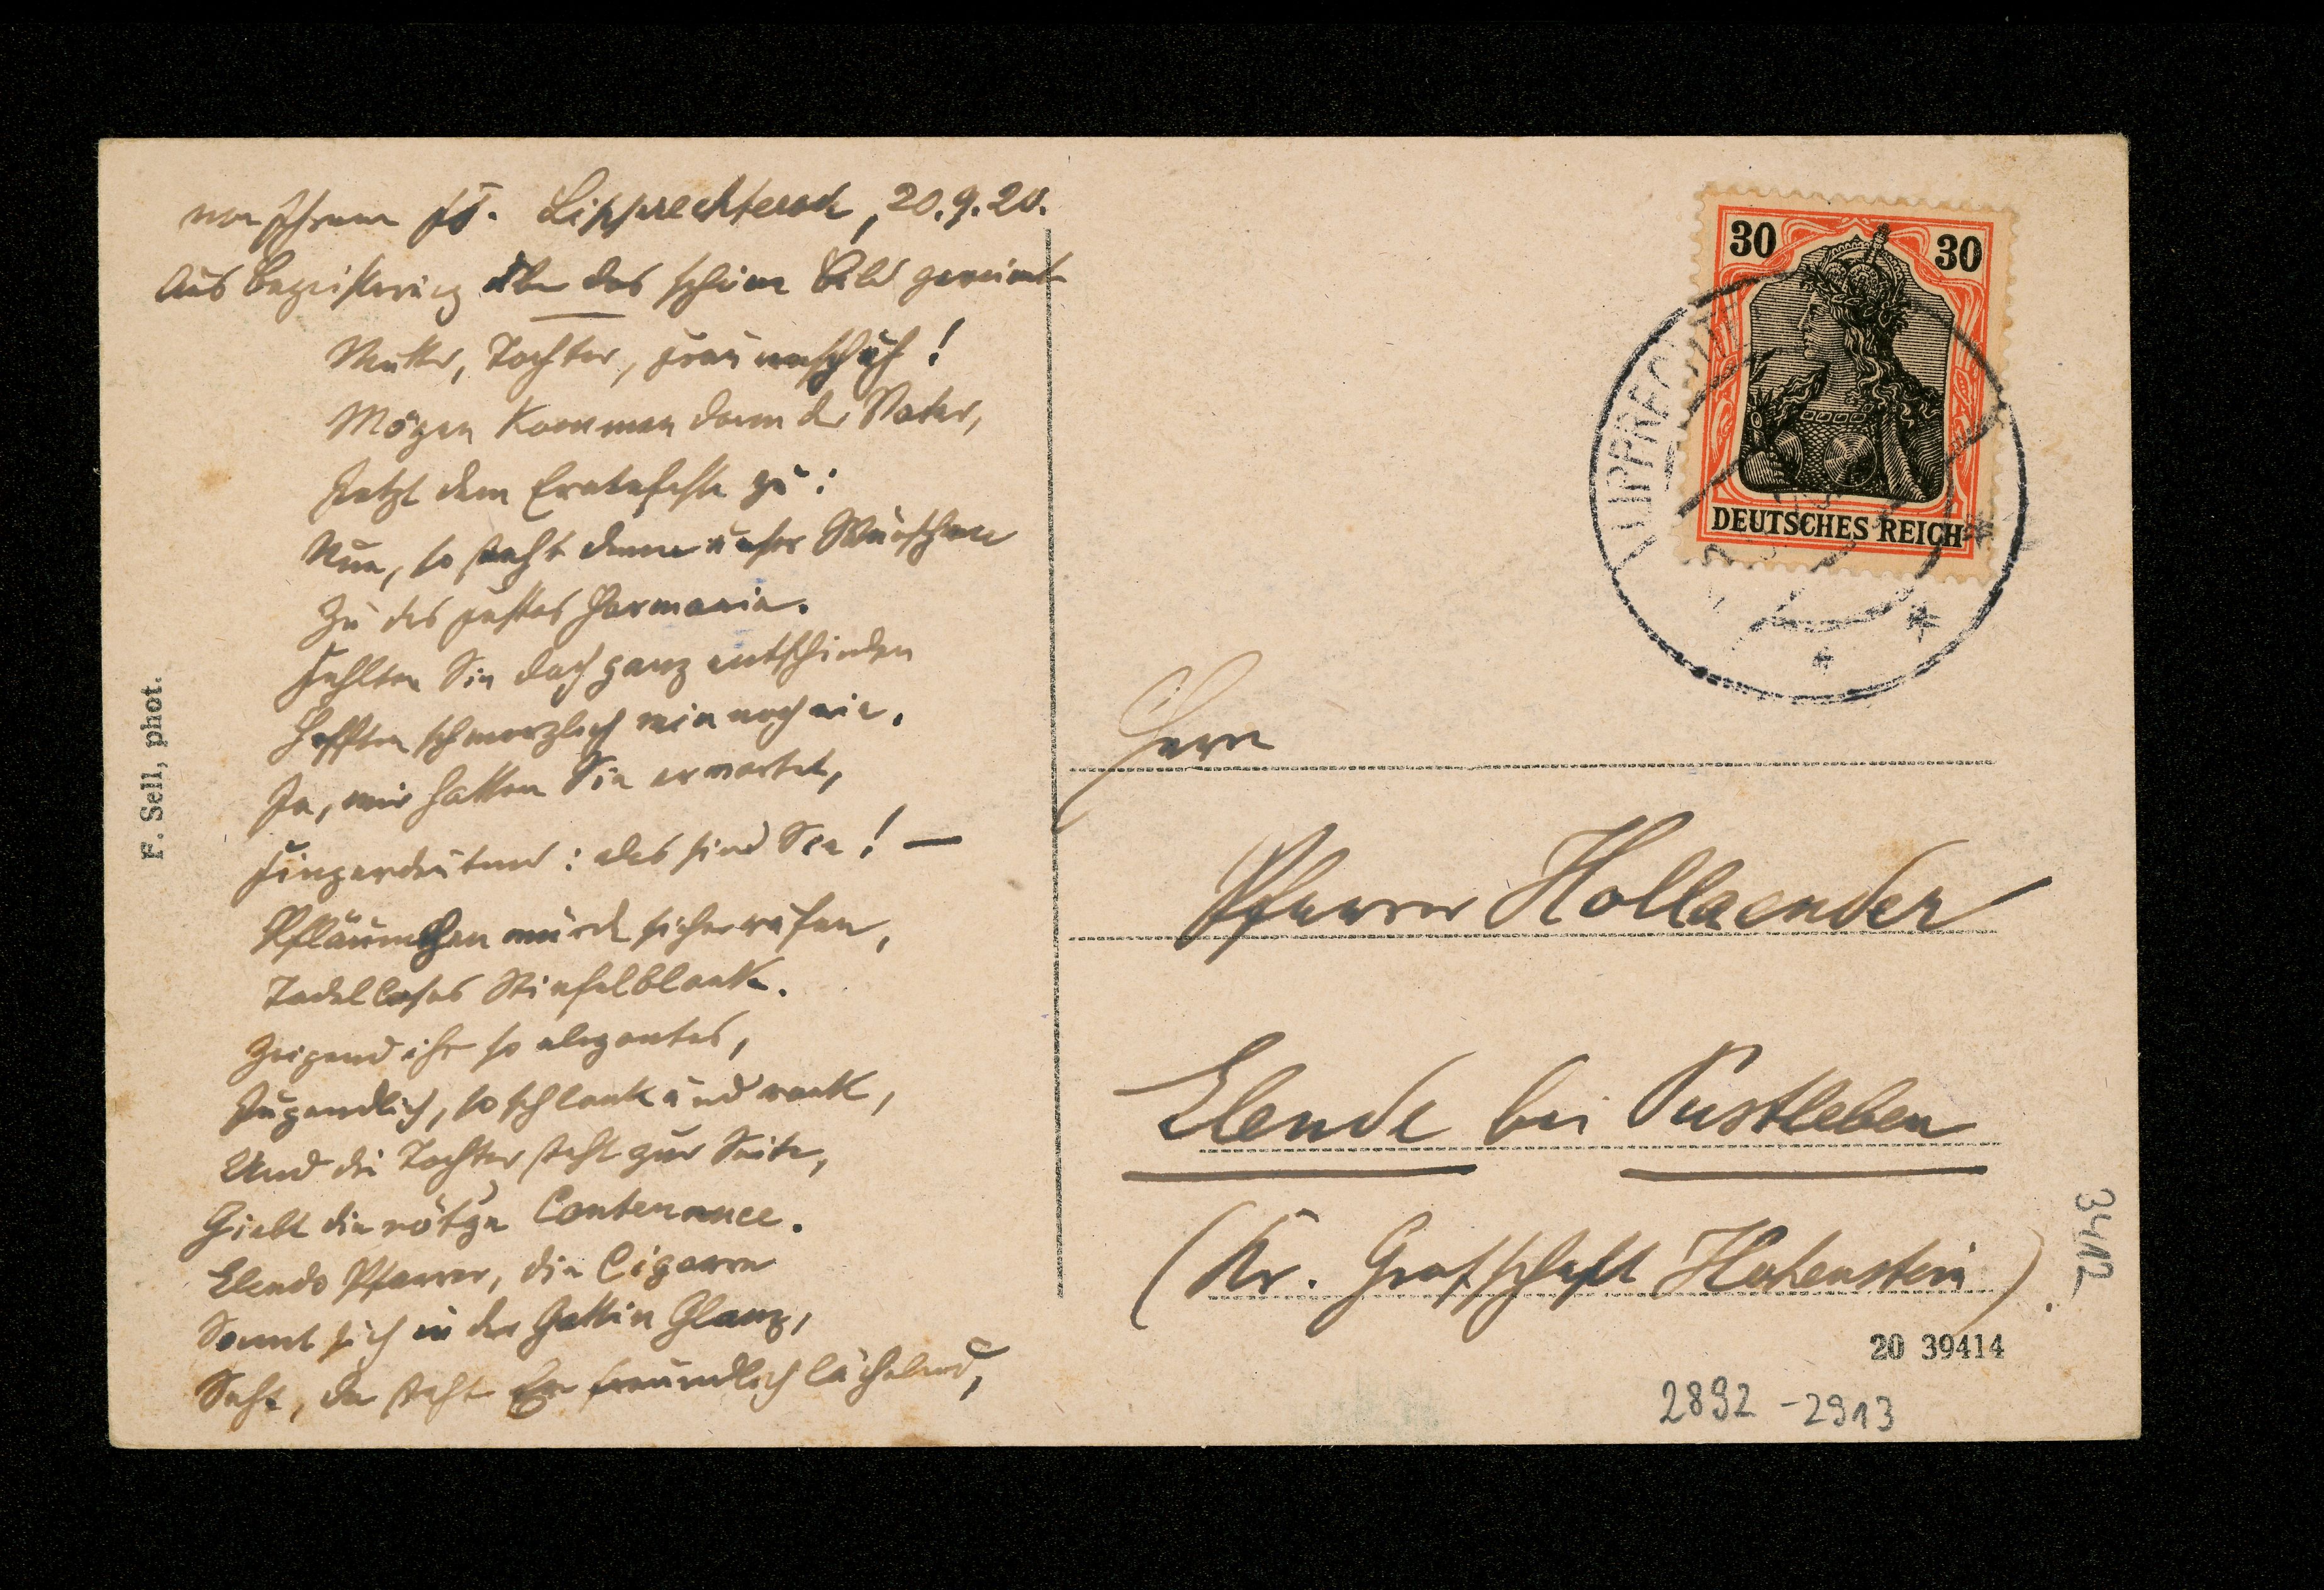 von Ihrem Lipprechterode, 20.9.20.
Aus Begeisterung über das schöne Bild gereimt
Mutter, Tochter, !
Mögen kommen dann der Vater,
Jetzt dem Erntefeste zu:
Nun, so steht denn unser Würstchen
Zu des Festes Harmonie.
Fehlten Sie doch ganz entschieden
Hofften schmerzlich wie noch nie.
Ja, wir hatten Sie erwartet,
Fingerdeutend: das sind Sie! —
Pfläumchen würde sicher rufen,
Tadelloses Stiefelblank.
Zeigend ihr so elegantes,
Jugendlich, so schlank und rank,
Und die Tochter steht zur Seite,
Giebt die nöt'ge Contenance.
Elends Pfarrer, die Cigarre
Sonnt sich in der Gattin Glanz,
Seht, da steht Er freundlich lächelnd,
F. Sell, phot.
30 30
DEUTSCHES REICH
LIPPRECHTE
Herrn
Pfarrer Hollaender
Elende bei Pustleben
(Kr. Grafschaft Hohenstein).
20 39414
2892 - 2913
3412